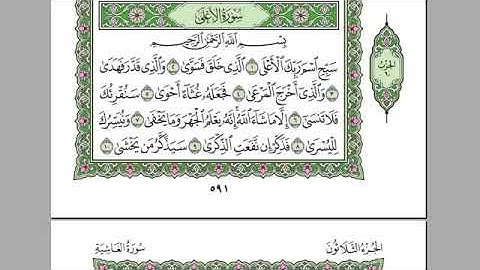 سُورَةُ الأَعْلَىٰ
بِسْمِ اللَّهِ الرَّحْمَٰنِ الرَّحِيمِ
سَبِّحِ اسْمَ رَبِّكَ الْأَعْلَى ١ الَّذِي خَلَقَ فَسَوَّىٰ ٢ وَالَّذِي قَدَّرَ فَهَدَىٰ
٣ وَالَّذِي أَخْرَجَ الْمَرْعَىٰ ٤ فَجَعَلَهُ غُثَاءً أَحْوَىٰ ٥ سَنُقْرِئُكَ
فَلَا تَنسَىٰ ٦ إِلَّا مَا شَاءَ اللَّهُ إِنَّهُ يَعْلَمُ الْجَهْرَ وَمَا يَخْفَىٰ ٧ وَنُيَسِّرُكَ
لِلْيُسْرَىٰ ٨ فَذَكِّرْ إِن نَّفَعَتِ الذِّكْرَىٰ ٩ سَيَذَّكَّرُ مَن يَخْشَىٰ ١٠
٥٩١
الجُزْءُ الثَّلَاثُونَ
سُورَةُ الغَاشِيَةِ